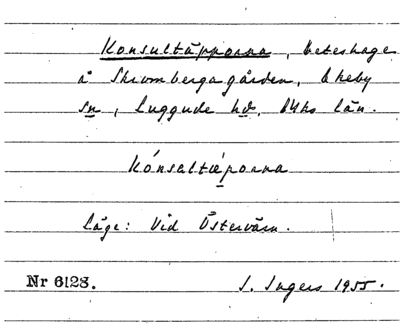 Konsultäpporna, beteshage
å Skrombergagården, Ekeby
sn, Luggude hd, Mhs län.
Kónsaltæ̀porna
Läge: Vid Östervärn.
Nr 6128. I. Ingers 1955.